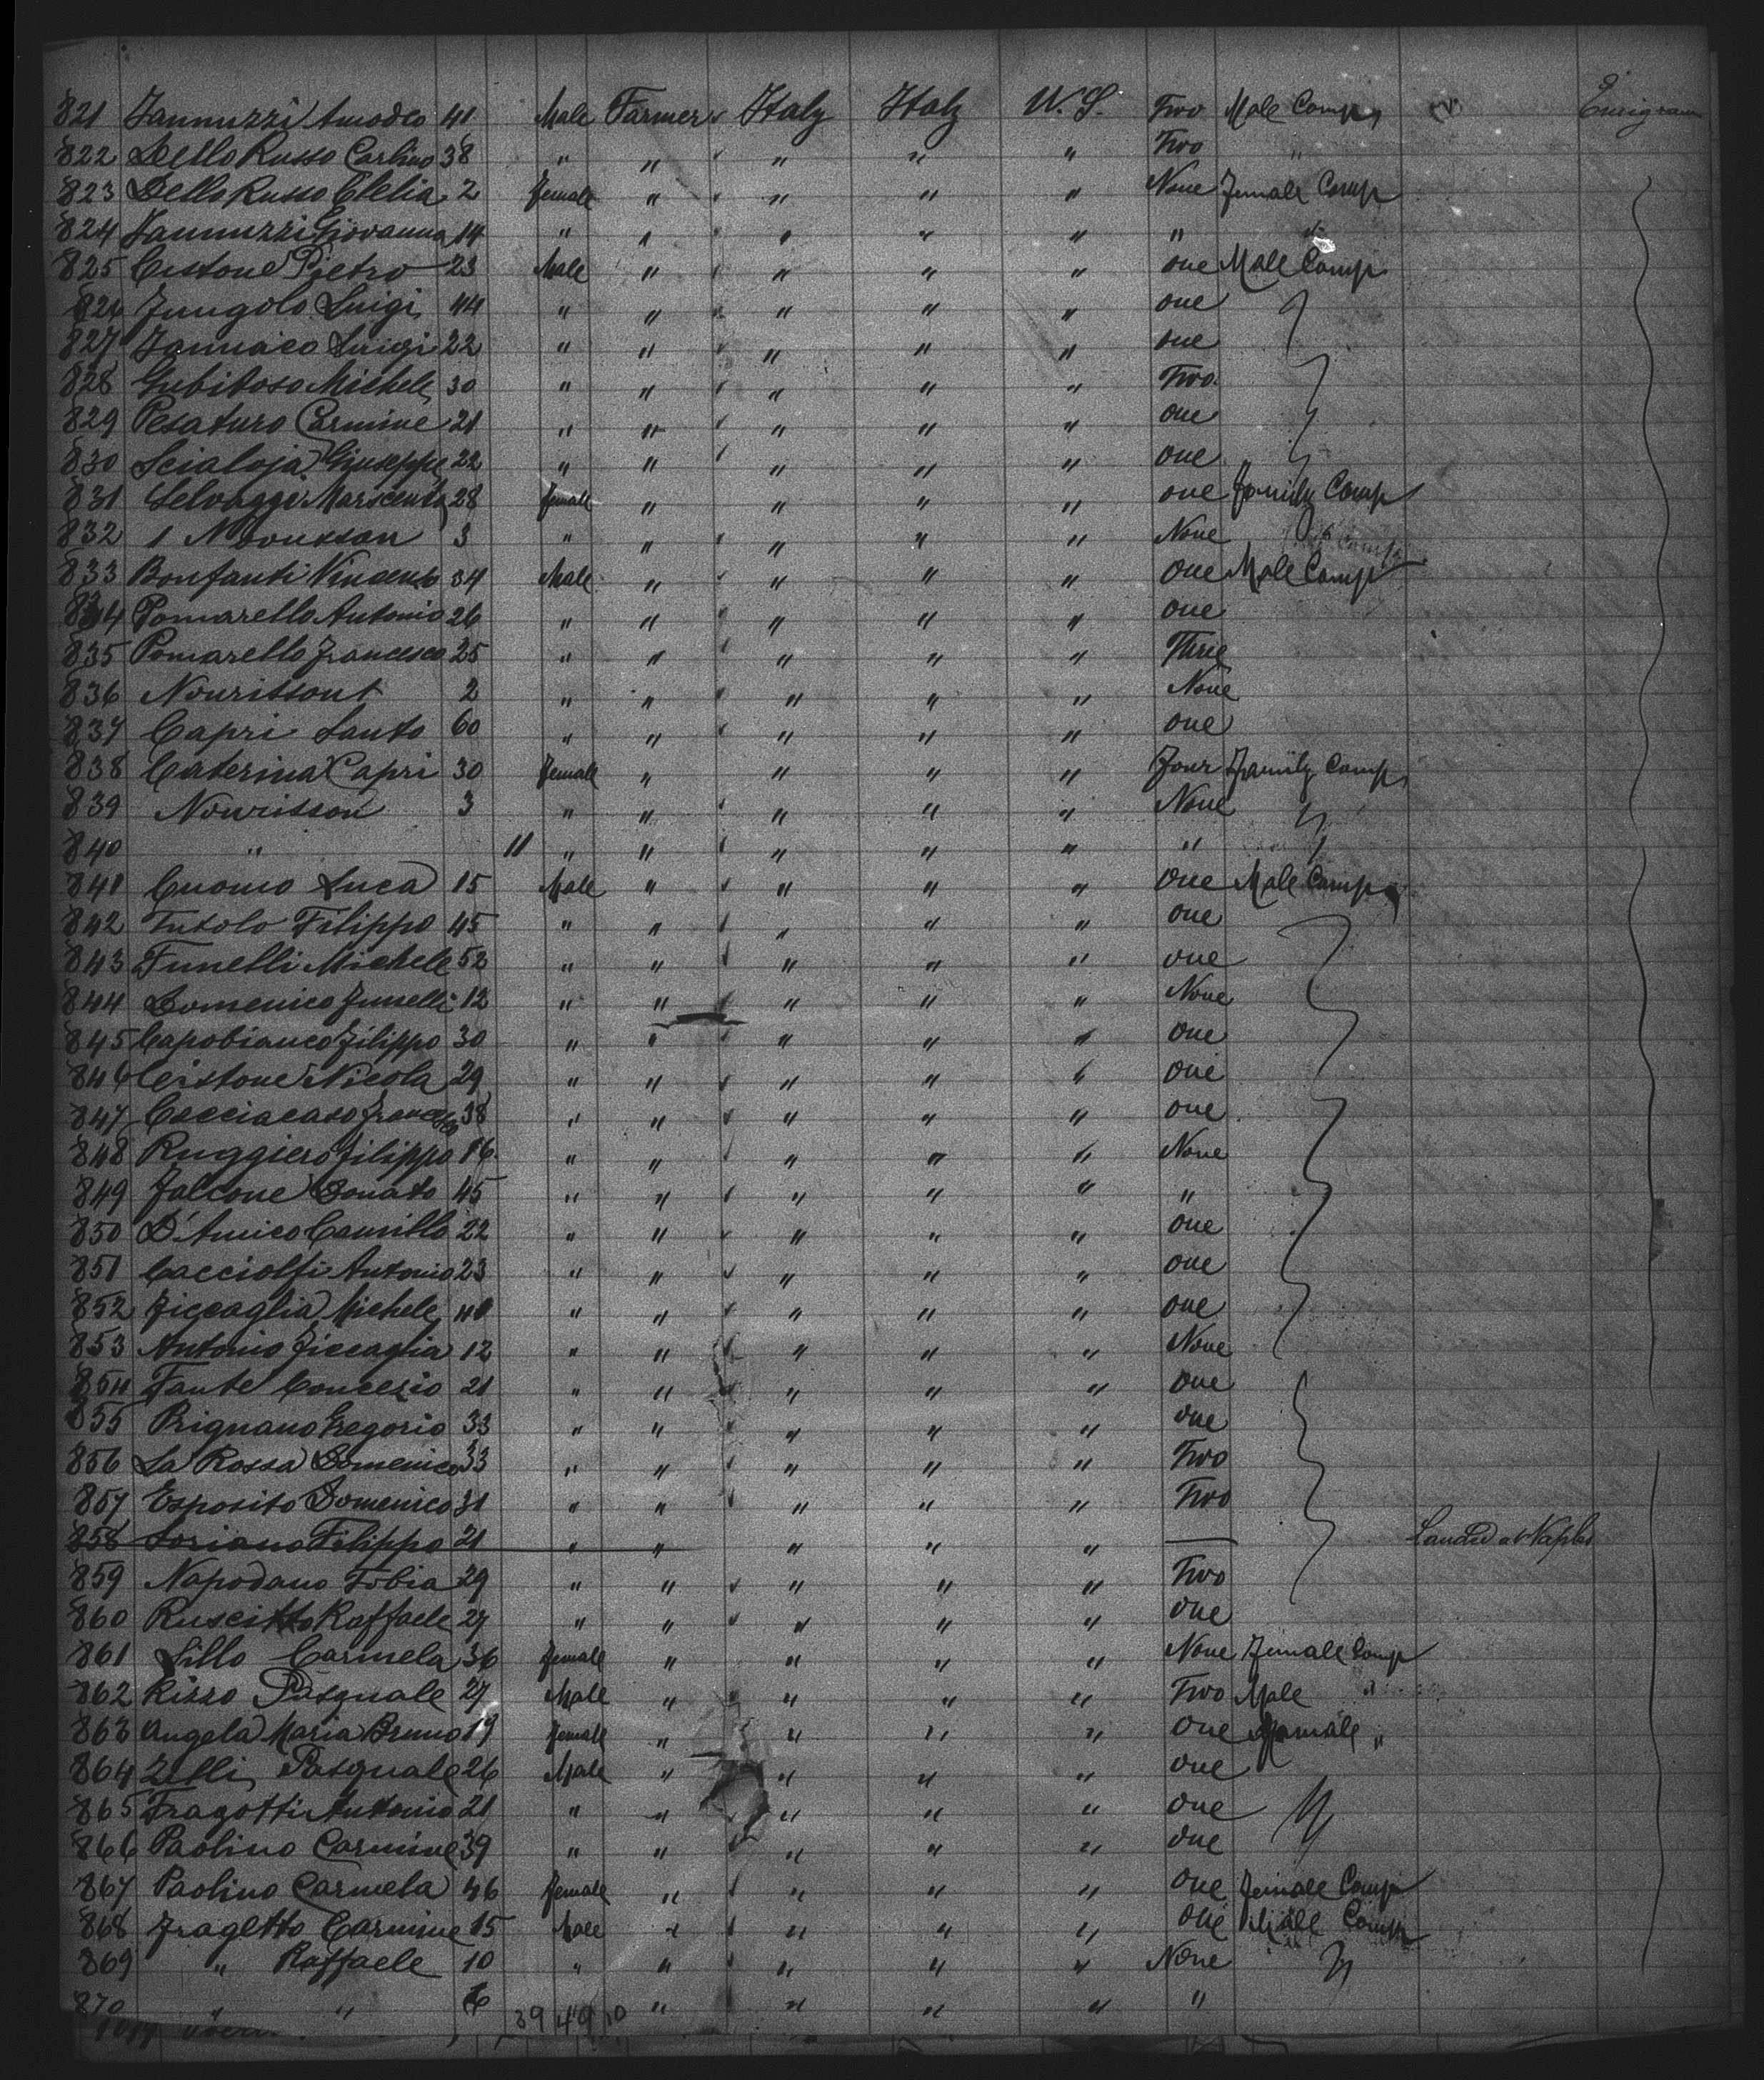 821 Iannuzzi Amodeo 41 Male Farmer Italy Italy U.S. Two Male Comp Emigram
822 Dello Russo Carlino 38 " " " " " Two "
823 Dello Russo Clelia 2 Female " " " " None Female Comp
824 Iannuzzi Giovanna 14 " " " " " " "
825 Cistone Pietro 23 Male " " " " one Male Comp
826 Luigi 44 " " " " " one
827 Luigi 22 " " " " " one
828 Gubitosa Michele 30 " " " " " Two
829 Pesaturo Carmine 21 " " " " " one
830 Scialoja Giuseppe 22 " " " " " one "
831 Selvaggi 28 Female " " " " one Family Comp
832 3 " " " " " None
833 Bonfanti 34 Male " " " " one Male Comp
834 Pomarello Antonio 26 " " " " " one
835 Pomarello Francesco 25 " " " " " Three
836 Nourissont 2 " " " " " None
837 Capri Santo 60 " " " " " one
838 Caterina Capri 30 Female " " " " Four Family Comp
839 Nourisson 3 " " " " " None
840 " 11 " " " " " "
841 Cuomo Luca 15 Male " " " " one Male Comp
842 Tutolo Filippo 45 " " " " " one
843 Funelli Michele 52 " " " " " one
844 Domenico Funelli 12 " " " " " None
845 Capobianco Filippo 30 " " " " " one
846 Cistone Nicola 29 " " " " " one
847 Cacciacaso Francesco 38 " " " " " one
848 Ruggiero Filippo 16 " " " " " None
849 Falcone Donato 45 " " " " " "
850 D'Amico Camillo 22 " " " " " one
851 Cacciolfi Antonio 23 " " " " " one
852 Ficcaglia Michele 40 " " " " " one
853 Antonio Ficcaglia 12 " " " " " None
854 Fante Concezio 21 " " " " " one
855 Prignano Gregorio 33 " " " " " one
856 La Rossa Domenico 33 " " " " " Two
857 Esposito Domenico 31 " " " " " Two
858 Soriano Filippo 21 " " " " " — Landed at Naples
859 Napodano Tobia 29 " " " " " Two
860 Ruscitto Raffaele 27 " " " " " one
861 Lillo Carmela 36 Female " " " " None Female Comp
862 Rizzo Pasquale 27 Male " " " " Two Male "
863 Angela Maria Bruno 19 Female " " " " one "
864 Zelli Pasquale 26 Male " " " " one
865 Fragotti Antonio 21 " " " " " one
866 Paolino Carmine 39 " " " " " one
867 Paolino Carmela 46 Female " " " " one Female Comp
868 Fragetto Carmine 15 Male " " " " one Male Comp
869 " Raffaele 10 " " " " " None
870 " " 6 " " " " "
39 49 10